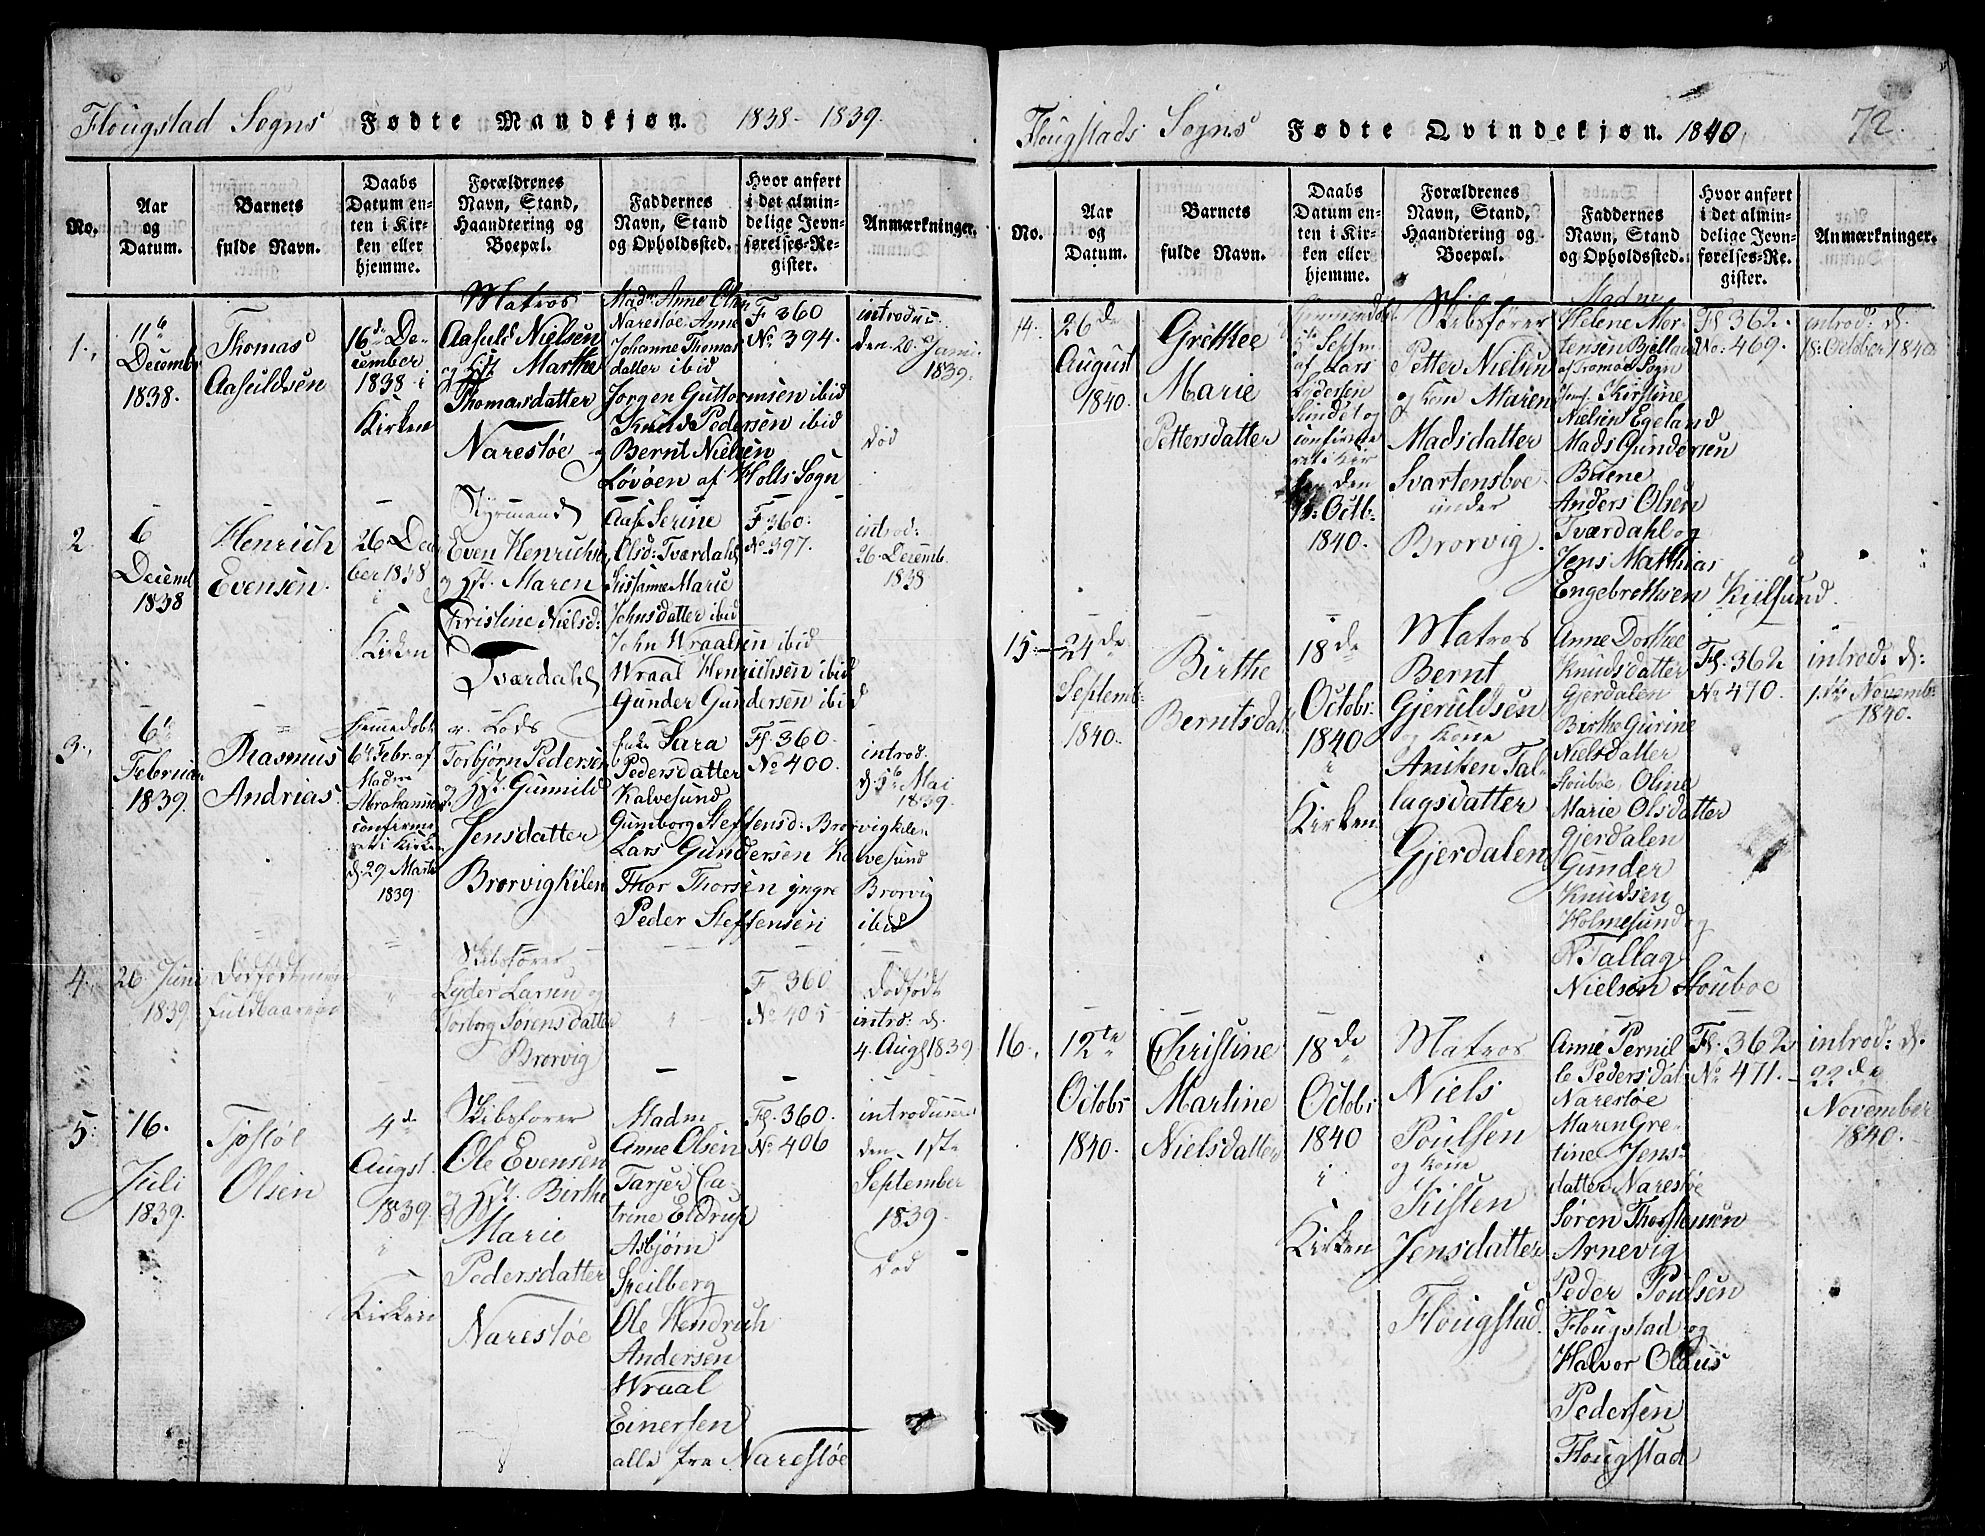 Flougstad Sogns Fødte Mandkjøn. 1838-1839.
No.
Aar
og
Datum.
Barnets
fulde Navn.
Daabs
Datum en-
ten i Kir-
ken eller
hjemme.
Forældrenes
Navn, Stand,
Haandtering og
Boepæl.
Faddernes
Navn, Stand
og Opholdssted.
Hvor anført
i det almin-
delige Jevn-
førelses-Re-
gister.
Anmærkninger.
1.
11te
Decembr
1838.
Thomas
Aasuldsen
16de De-
cember
1838 i
Kirken
Matros
Aasuld Nielsen
og Hst. Marthe
Thomasdatter
Narestøe
Madm Anne
Narestøe Anne
Johanne Thomas
datter ibid
Jørgen Guttormsen ibid
Knud Pedersen ibid
og Bernt Nielsen
Løvøen af Holts Sogn
F 360
No 394.
introdu.
den 20. Janu.
1839.
død
2.
6
Decemb
1838
Henrich
Evensen.
26 De
ber 1838
i
Kirken
Styrmand
Even Henrichs
og Hst. Maren
Kristine Nielsd:
Tværdahl
Aase Serine
Olsd: Tværdahl
Marie
Johnsdatter ibid
John Wraalsen ibid
Wraal Henrichsen ibid
Gunder Gundersen ibid
F 360.
No 397.
introd:
26 Decemb.
1838
3.
6te
Februar
1839.
Rasmus
Andrias
Hjemmedøbt
6te Febr. af
Madm
Abrahamsen
confirme
ret i Kirken
d. 29 Marts
1839
Lods
Torbjørn Pedersen
og Hst. Gunnild
Jensdatter
Brorvigkilen
Sara
Pedersdatter
Kalvesund
Gunborg Steffensd: Brorvigkilen
Lars Gundersen Kalvesund
Thor Thorsen yngre Brorvig
Peder Steffensen ibid
Fl 360.
No 400.
introd.
d. 5te Mai
1839.
4.
26 Juni
1839
Dødfødt
fuldbaaren
Skibsfører
Lyder Larsen og
Torborg Sørensdatter
Brorvig
F 360
No 405
Dødfødt
introd: d.
4. Aug 1839
5.
16.
Juli
1839.
Tostøl
Olsen
4de
Augst
1839.
i
Kirken
Skibsfører
Ole Evensen
og Hst. Birthe
Marie
Pedersdatter
Narestøe
Madm
Anne Olsen
Tarjer Ca-
trine Eldrup
Asbjørn
Speilberg
Ole Hendrich
Andersen
Wraal
Einersen
alle fra Narestøe
Fl. 360.
No 406
introduseret
den 1ste
September
1839.
død
Flougstads Sogns Fødte Qvindekjøn. 1840.
72.
No.
Aar
og
Datum.
Barnets
fulde Navn.
Daabs
Datum en-
ten i Kir-
ken eller
hjemme.
Forældrenes
Navn, Stand,
Haandtering og
Boepæl.
Faddernes
Navn, Stand
og Opholdssted.
Hvor anført
i det almin-
delige Jevn-
førelses-Re-
gister.
Anmærkninger.
14.
26de
August
1840.
Grethee
Marie
Pettersdatter
Hjemmedøbt
5te Septm
af Lars
Lydersen
Sundet og
confirme
ret i Kir
ken den
18: Octb:
1840.
Skibsfører
Petter Nielsen
og Kone Maren
Madsdatter
Svartensboe
under
Brorvig.
Madme
Helene Mor-
tensen Bjelland
af Tromøe Sogn
Kirstine
Nielsen Egeland
Mads Gundersen
Buene
Anders Olsen
Tværdahl og
Jens Matthias
Engebrethsen Kiilsund
Fl 362.
No. 469.
introd: d.
18: October 1840
15.
24de
Septemb:
1840.
Birthe
Berntsdatt
18de
Octobr:
1840
i
Kirken
Matros
Bernt
Gjeruldsen
og Kone
Aniken Tal-
lagsdatter
Gjerdalen
Anne Dorthee
Knudsdatter
Gjerdalen
Birthe Gurine
Nielsdatter
Stouboe Oline
Marie Olsdatter
Gjerdalen
Gunder
Knudsen
Holmesund og
Tallag
Nielsen Stouboe
Fl. 362
No 470.
introd: d:
1ste Novemb:
1840.
16.
12te
Octobr
1840.
Christine
Martine
Nielsdatter
18de
Octobr
1840
i
Kirken
Matros
Niels
Poulsen
og Kone
Kisten
Jensdatter
Flougstad.
Anne Pernil
le Pedersdat:
Narestøe
Maren Gre-
tine Jens-
datter Narestøe
Søren Thorstensen
Arnevig
Peder Poulsen
Flougstad og
Halvor Olaus
Pedersen
Flougstad
Fl. 362
No 471.
introd: d.
22de
November
1840.